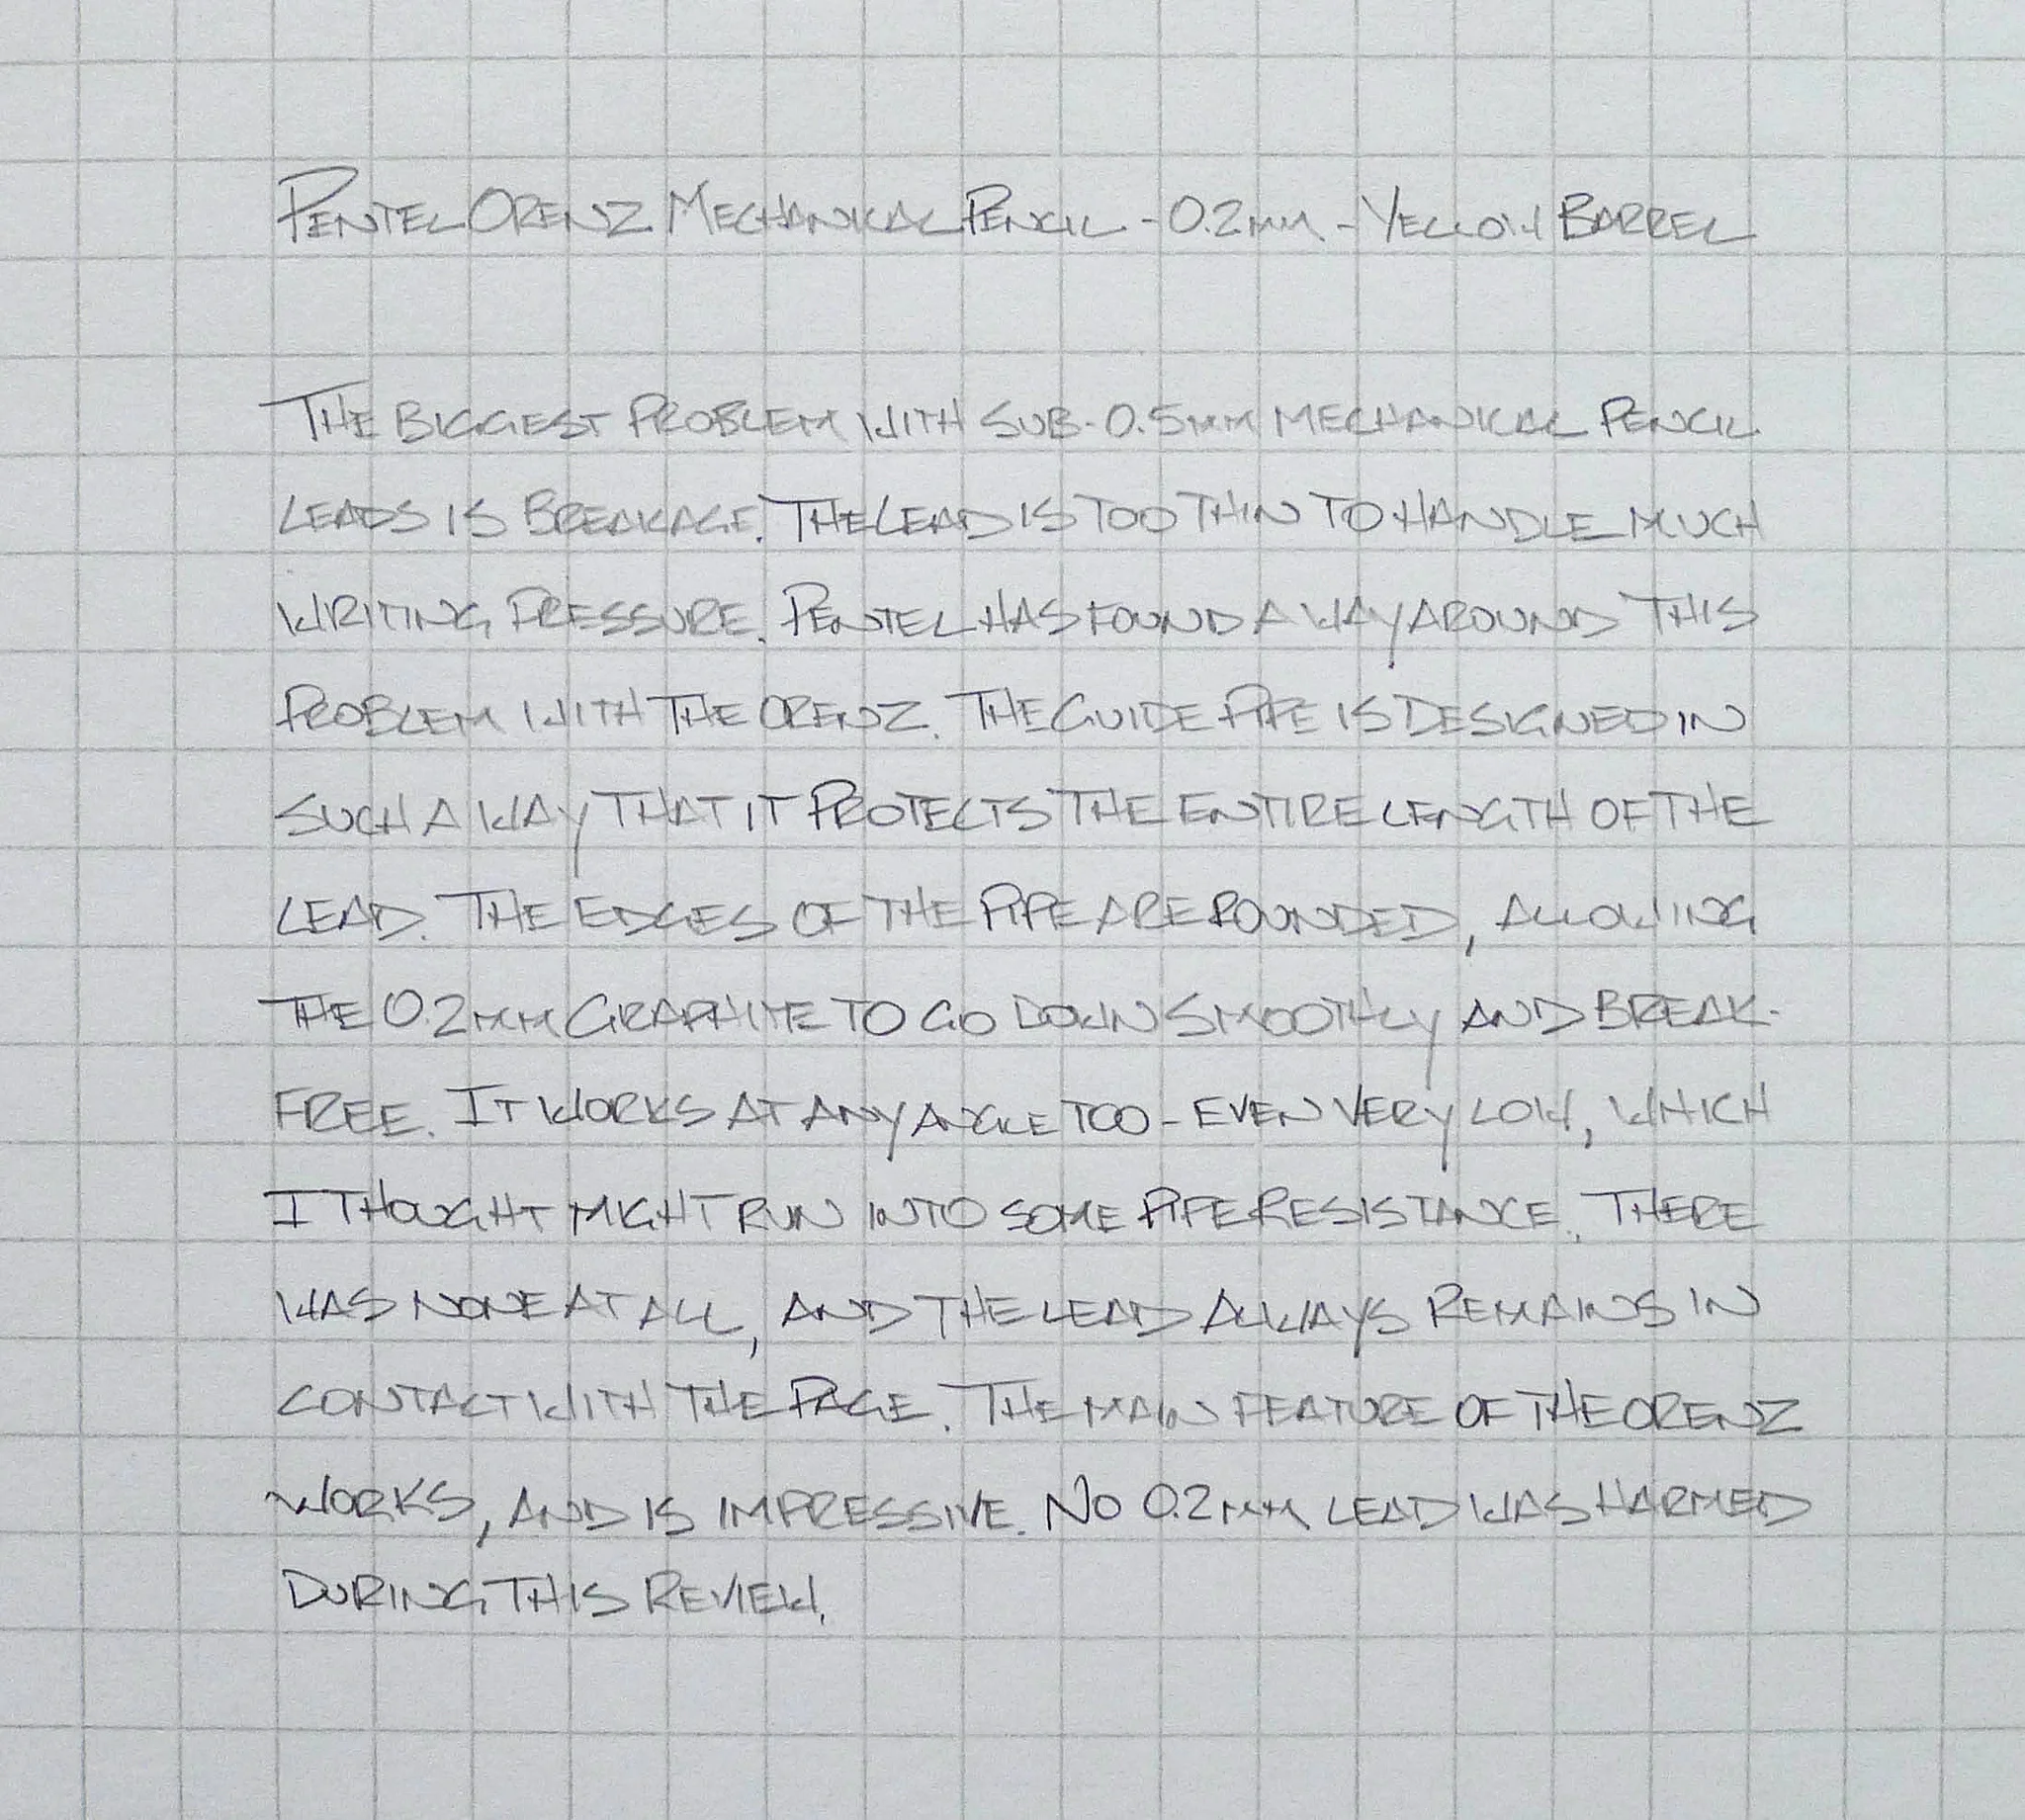 PENTEL ORENZ MECHANICAL PENCIL - 0.2MM - YELLOW BARREL
THE BIGGEST PROBLEM WITH SUB-0.5MM MECHANICAL PENCIL
LEADS IS BREAKAGE. THE LEAD IS TOO THIN TO HANDLE MUCH
WRITING PRESSURE. PENTEL HAS FOUND A WAY AROUND THIS
PROBLEM WITH THE ORENZ. THE GUIDE PIPE IS DESIGNED IN
SUCH A WAY THAT IT PROTECTS THE ENTIRE LENGTH OF THE
LEAD. THE EDGES OF THE PIPE ARE ROUNDED, ALLOWING
THE 0.2MM GRAPHITE TO GO DOWN SMOOTHLY AND BREAK-
FREE. IT WORKS AT ANY ANGLE TOO - EVEN VERY LOW, WHICH
I THOUGHT MIGHT RUN INTO SOME PIPE RESISTANCE. THERE
WAS NONE AT ALL, AND THE LEAD ALWAYS REMAINS IN
CONTACT WITH THE PAGE. THE MAIN FEATURE OF THE ORENZ
WORKS, AND IS IMPRESSIVE. NO 0.2MM LEAD WAS HARMED
DURING THIS REVIEW.